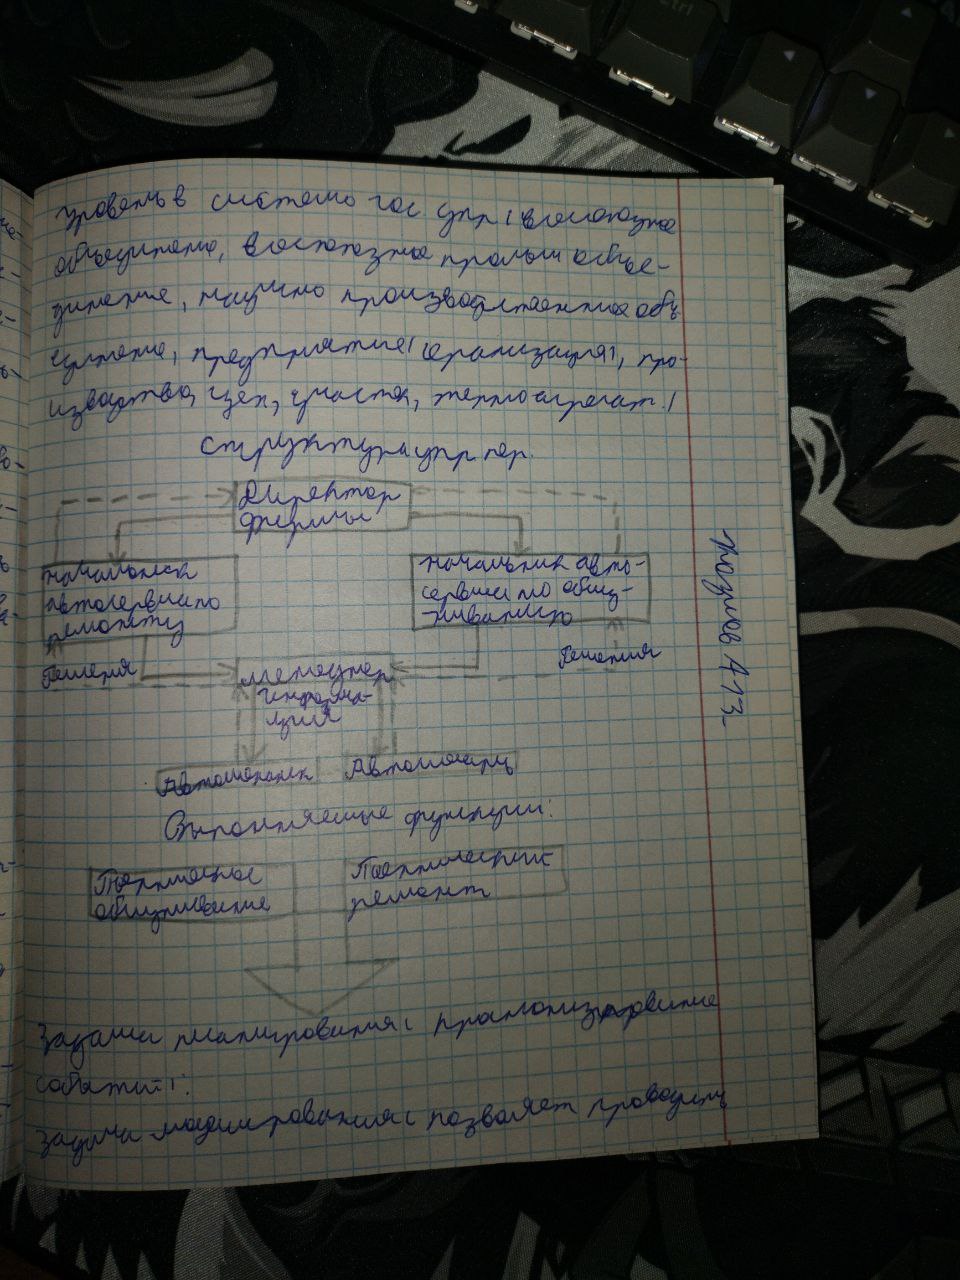 уровень в системе гос упр (всесоюзное
объединение, всесоюзное промыш объе-
динение, научно производственное объ
единение, предприятие (организация), про-
изводство, цех, участок, термоагрегат.)
структура упр пер.
Директор
фирмы
начальник
автосервиса по
ремонту
начальник авто-
сервиса по обслу-
живанию
Решения
Решения
менеджер
информа-
ция
Автомеханик
Автослесарь
Выполняемые функции:
Техническое
обслуживание
Технический
ремонт
Задачи планирования (прогнозирование
событий):
Задача моделирования (позволяет проводить
А-13
Ctrl